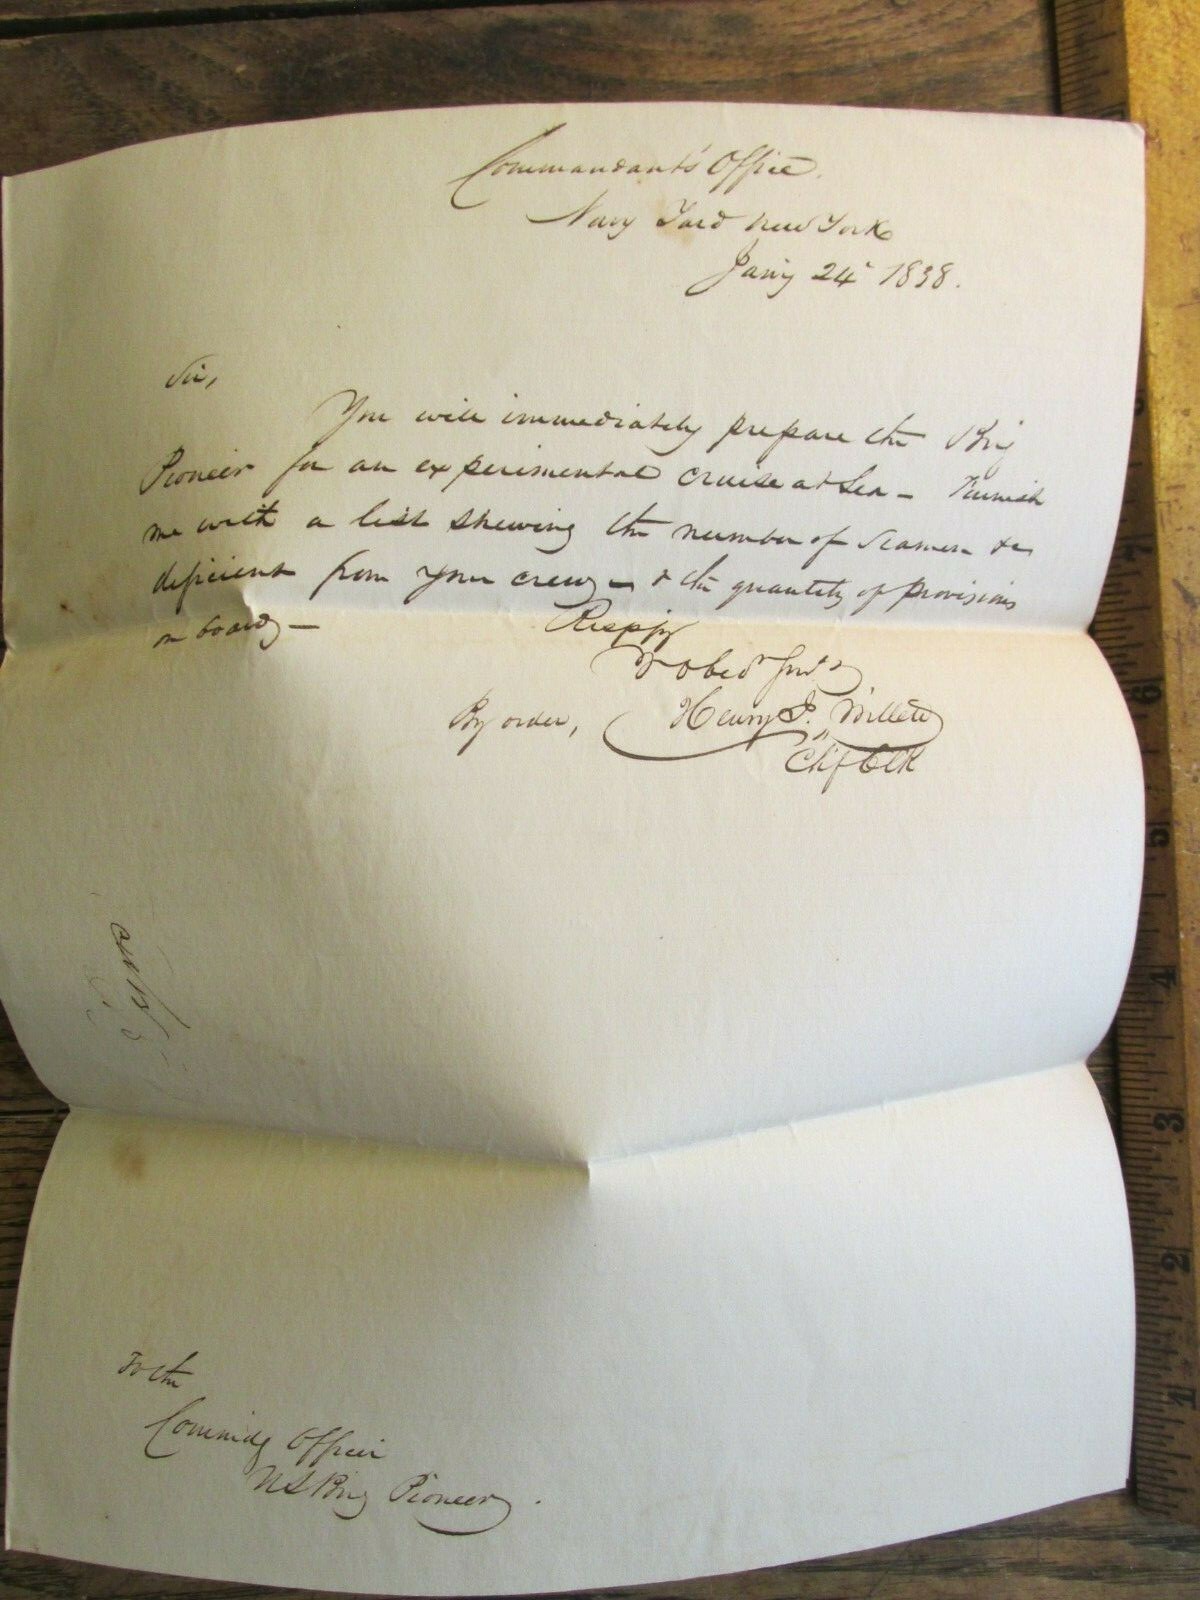 Commandant's Office.
Navy Yard New York
Jan'y 24' 1838.
Sir,
You will immediately prepare the Brig
Pioneer for an experimental cruise at Sea - Furnish
me with a list shewing the number of Seamen &c
deficient from your crew - & the quantity of provisions
on board -
Respy
Yr obedt
By order, Henry S. Willett
Chf Clk
To the
Commdg Officer
US Brig Pioneer.
6
5
4
3
2
1